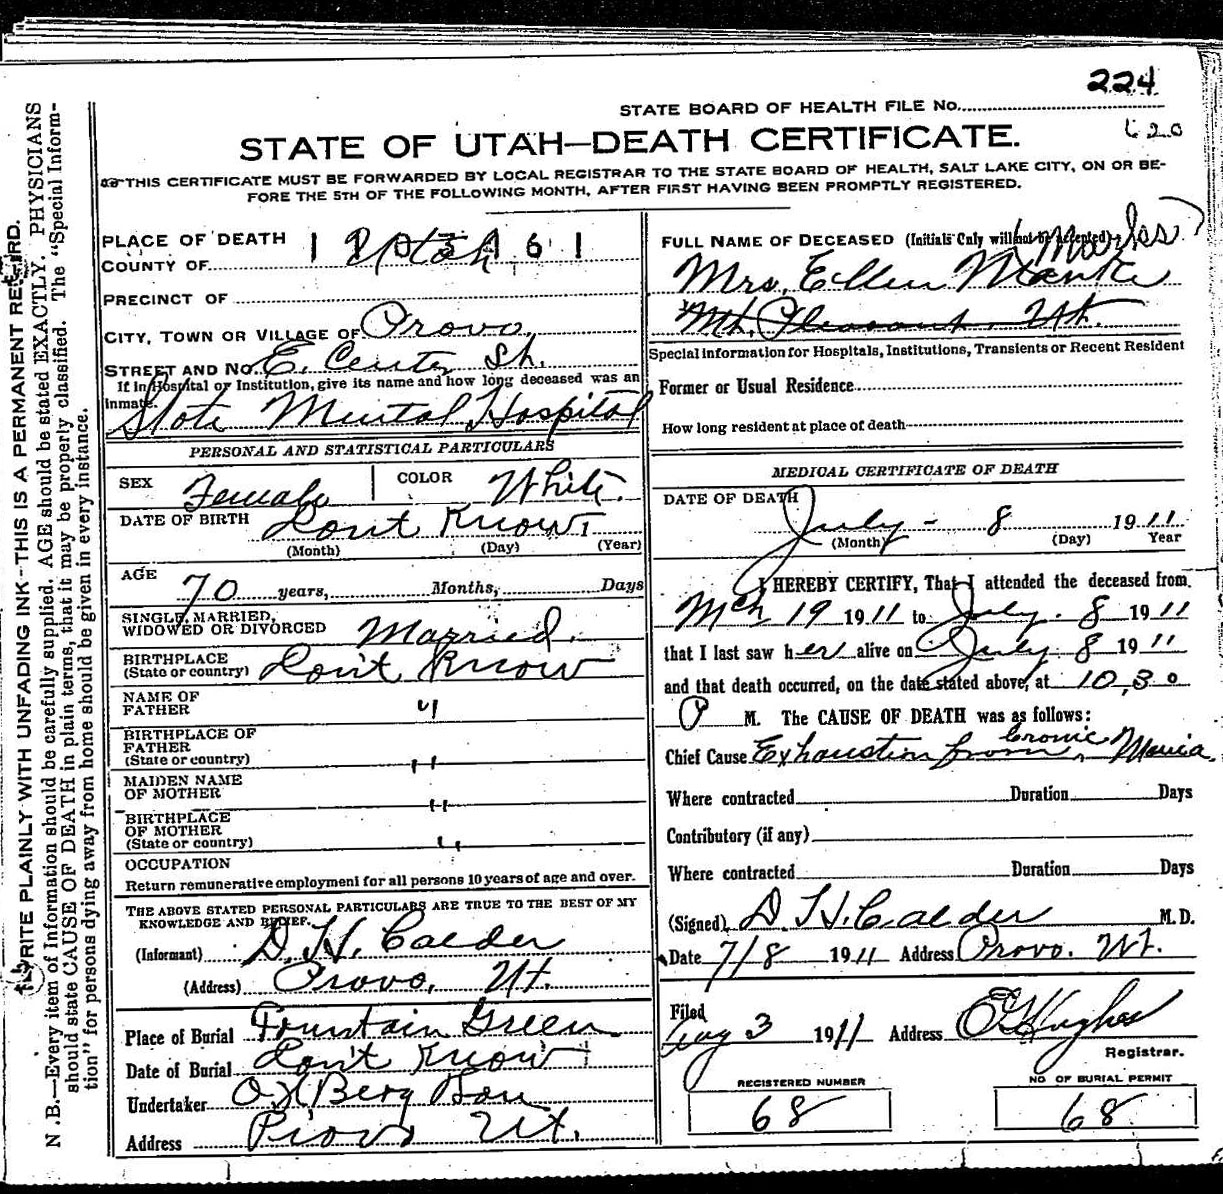 224
STATE BOARD OF HEALTH FILE No.
620
STATE OF UTAH—DEATH CERTIFICATE.
THIS CERTIFICATE MUST BE FORWARDED BY LOCAL REGISTRAR TO THE STATE BOARD OF HEALTH, SALT LAKE CITY, ON OR BE-
FORE THE 5TH OF THE FOLLOWING MONTH, AFTER FIRST HAVING BEEN PROMPTLY REGISTERED.
WRITE PLAINLY WITH UNFADING INK—THIS IS A PERMANENT RECORD.
N.B.—Every item of information should be carefully supplied. AGE should be stated EXACTLY. PHYSICIANS
should state CAUSE OF DEATH in plain terms, that it may be properly classified. The "Special Inform-
tion" for persons dying away from home should be given in every instance.
PLACE OF DEATH
COUNTY OF Utah
PRECINCT OF
CITY, TOWN OR VILLAGE OF Provo,
STREET AND No. E. Center St.
If in Hospital or Institution, give its name and how long deceased was an
inmate.
State Mental Hospital
PERSONAL AND STATISTICAL PARTICULARS
SEX Female COLOR White.
DATE OF BIRTH Dont Know 1
(Month) (Day) (Year)
AGE 70 years, Months, Days
SINGLE, MARRIED,
WIDOWED OR DIVORCED Married.
BIRTHPLACE
(State or country) Don't Know
NAME OF
FATHER "
BIRTHPLACE OF
FATHER
(State or country) "
MAIDEN NAME
OF MOTHER "
BIRTHPLACE
OF MOTHER
(State or country) "
OCCUPATION
Return remunerative employment for all persons 10 years of age and over.
THE ABOVE STATED PERSONAL PARTICULARS ARE TRUE TO THE BEST OF MY
KNOWLEDGE AND BELIEF.
(Informant) D. H. Calder
(Address) Provo, Ut.
Place of Burial Fountain Green
Date of Burial Don't Know 1
Undertaker O H Berg Son
Address Provo Ut.
FULL NAME OF DECEASED (Initials Only will not be accepted)
(Marks?
Mrs. Ellen Manke
Mt. Pleasant, Ut.
Special information for Hospitals, Institutions, Transients or Recent Resident
Former or Usual Residence
How long resident at place of death
MEDICAL CERTIFICATE OF DEATH
DATE OF DEATH
July - 8 1911
(Month) (Day) Year
I HEREBY CERTIFY, That I attended the deceased from
Mch 19 1911 to July. 8 1911
that I last saw her alive on July 8 1911
and that death occurred, on the date stated above, at 10,30
P M. The CAUSE OF DEATH was as follows:
Chief Cause Exhaustion from Cronic Mania.
Where contracted Duration Days
Contributory (if any)
Where contracted Duration Days
(Signed) D. H. Calder M.D.
Date 7/8 1911 Address Provo. Ut.
Filed
Aug 3 1911 Address Hughes
Registrar.
REGISTERED NUMBER
68
NO OF BURIAL PERMIT
68